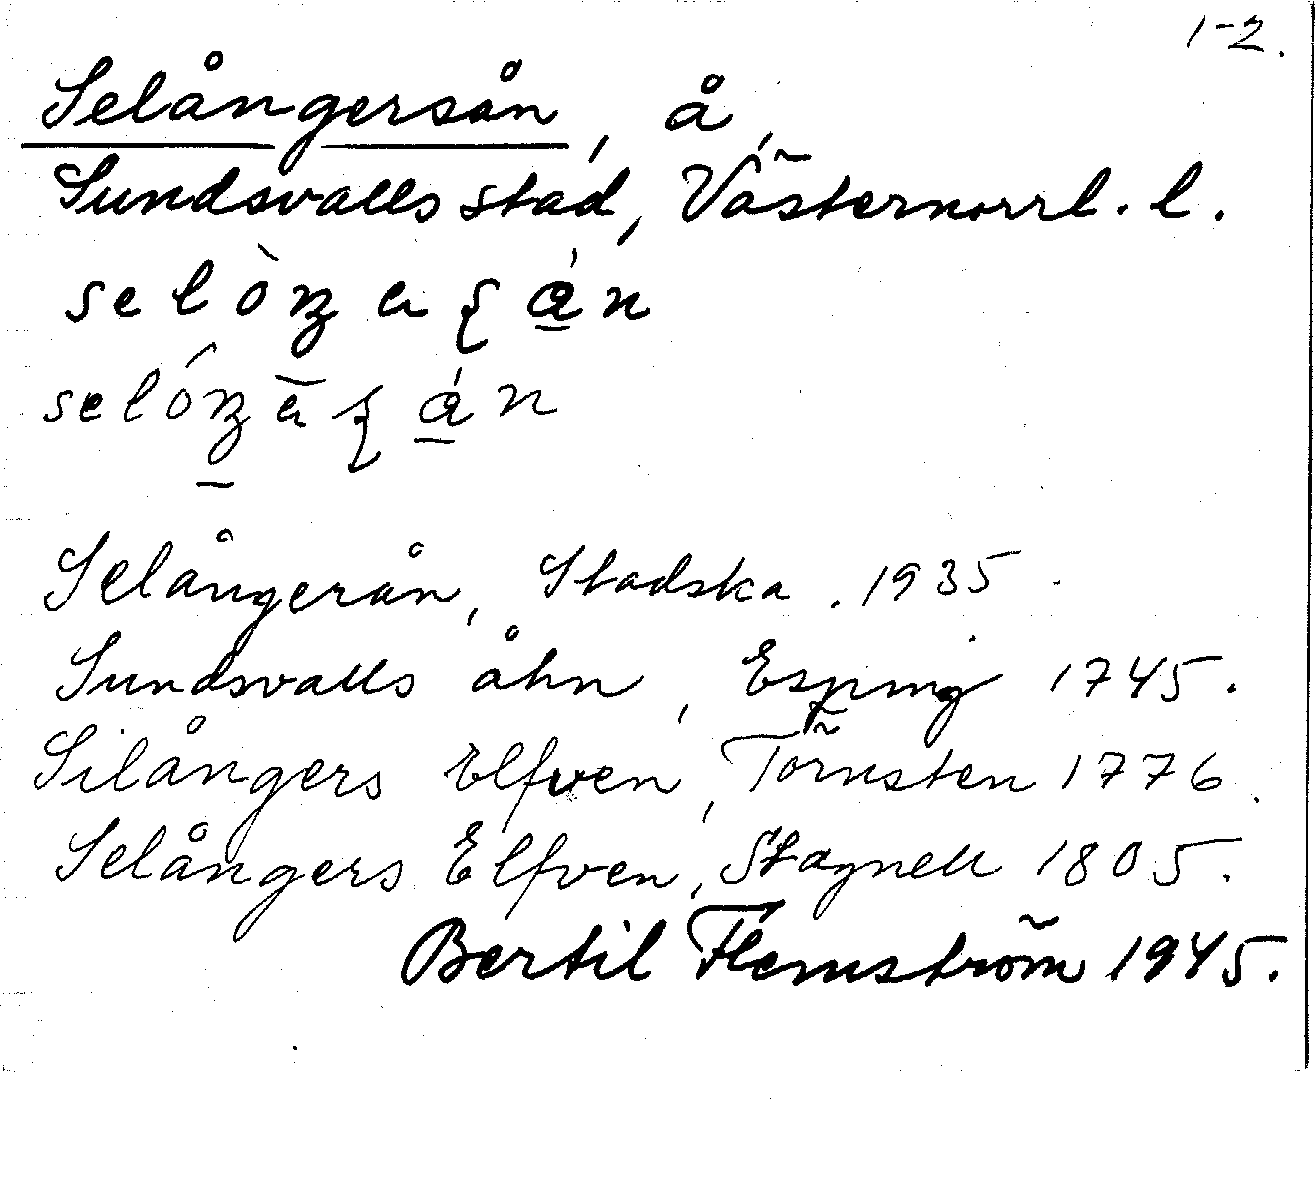 1-2.
Selångersån, å,
Sundsvalls stad, Västernorrl. l.
Selångerån, Stadska. 1935
Sundsvalls åhn, Esping 1745.
Silångers Elfven, Törnsten 1776.
Selångers Elfven, Stagnell 1805.
Bertil Flemström 1945.